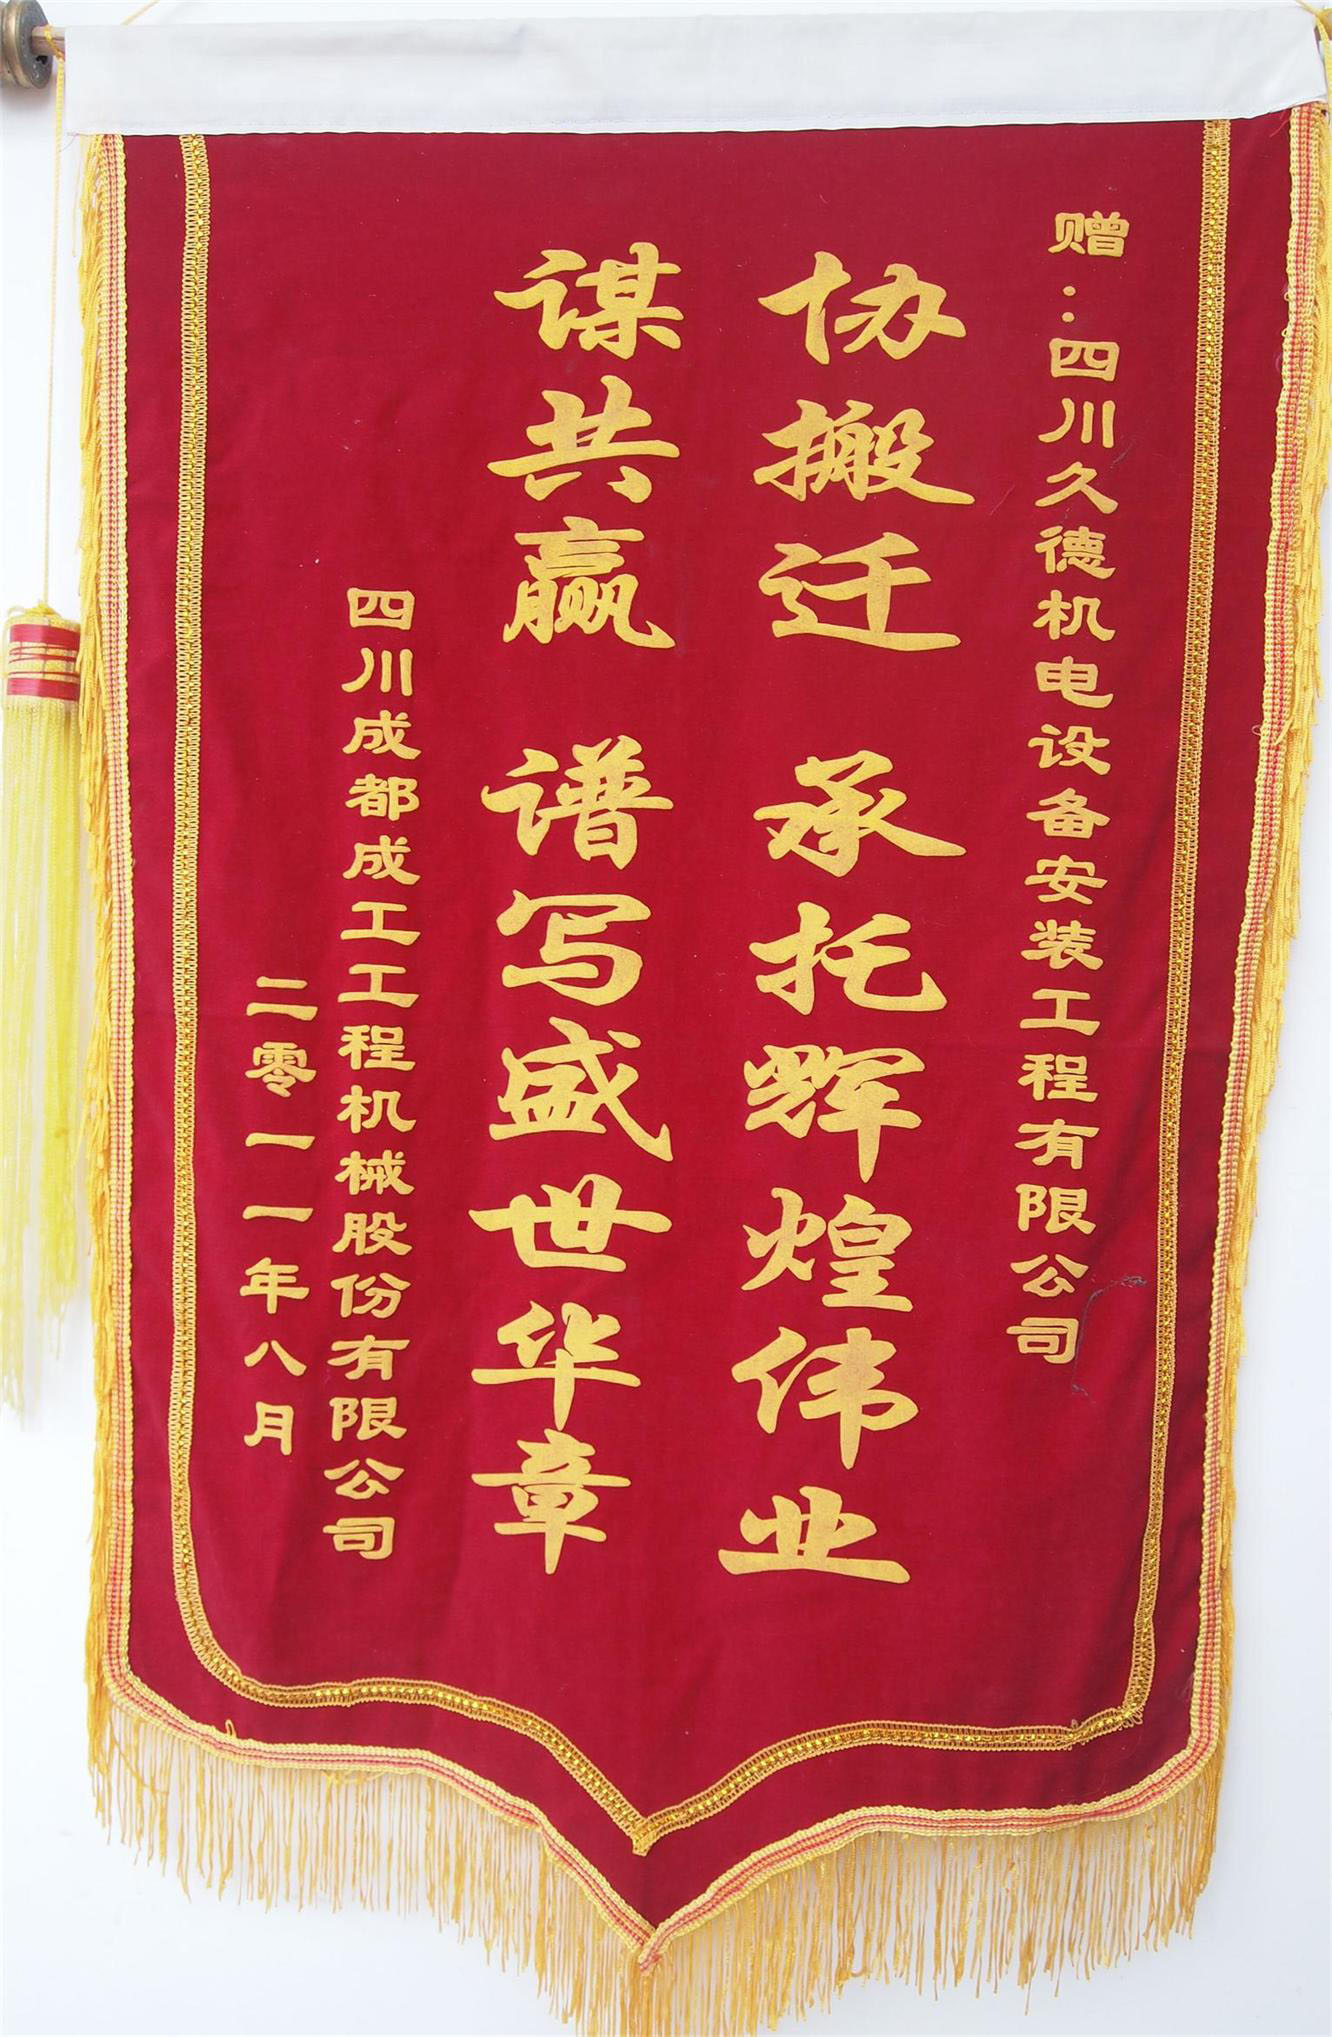 赠：四川久德机电设备安装工程有限公司
协搬迁 承托辉煌伟业
谋共赢 谱写盛世华章
四川成都成工工程机械股份有限公司
二零一一年八月